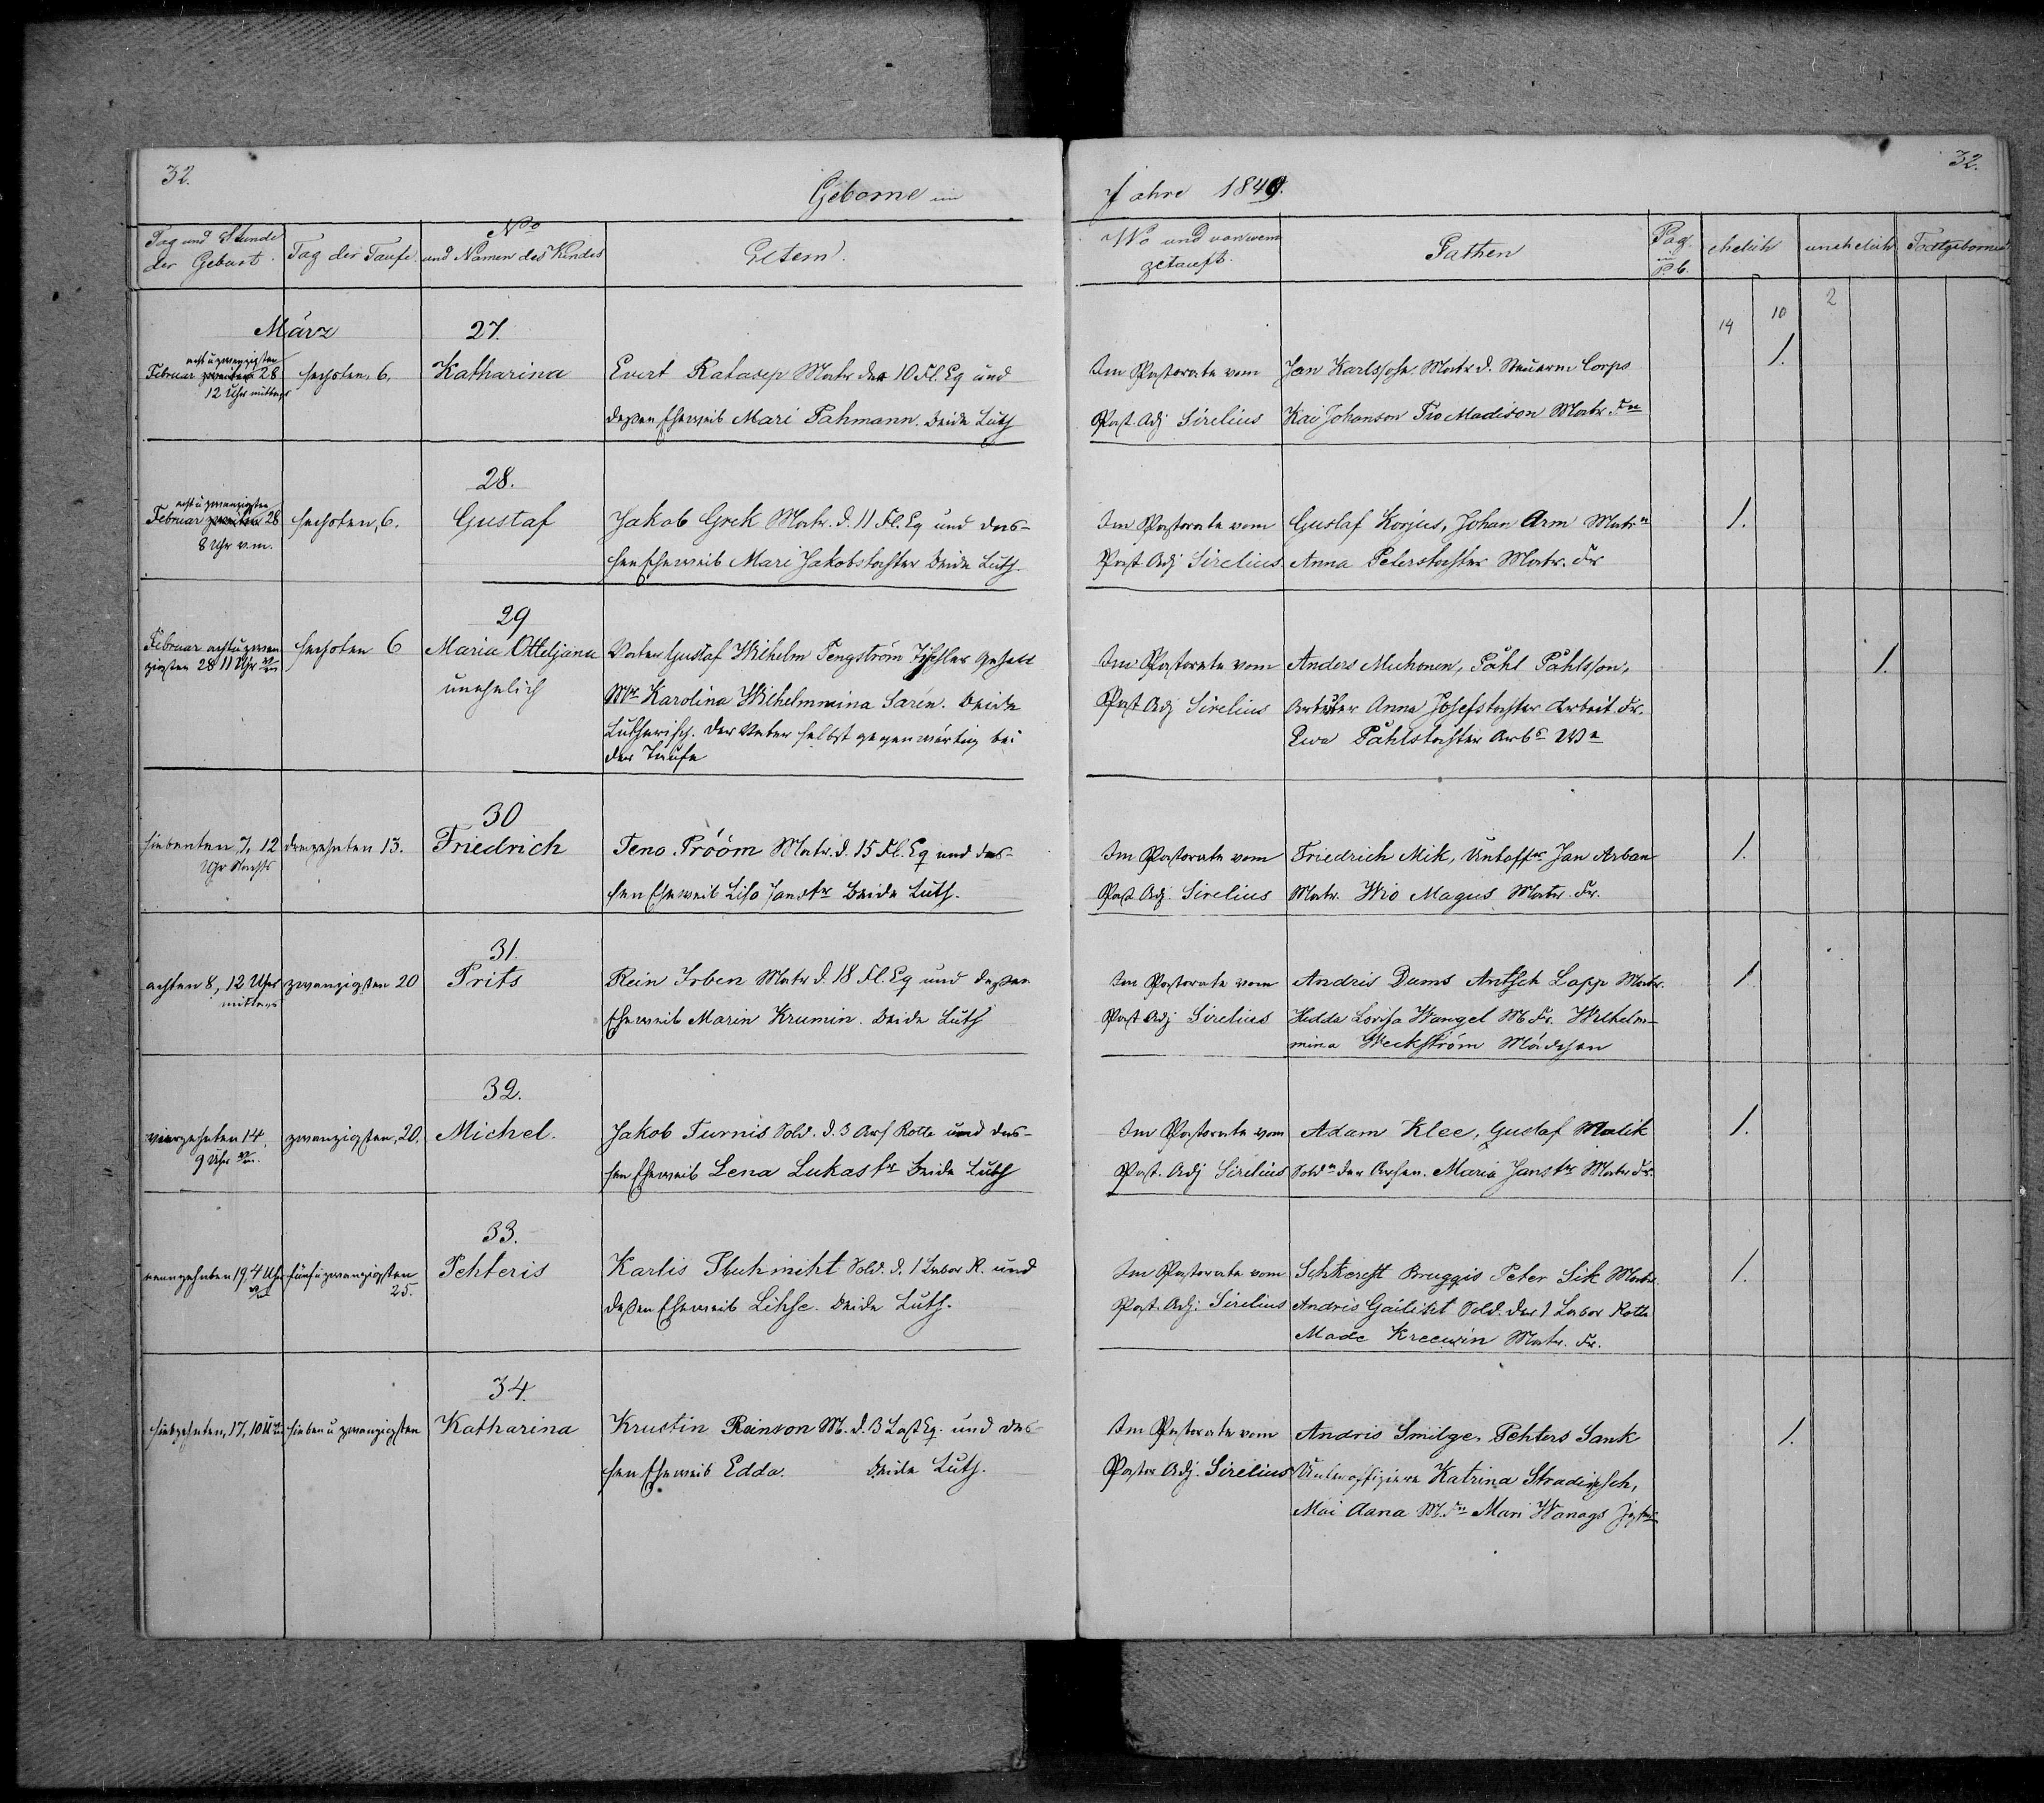 32.
32.
Geborne im
Jahre 1849.
Tag und Stunde
der Geburt.
Tag der Taufe
No
und Namen des Kindes
Eltern.
Wo und von wem
getauft.
Pathen
Pag.
im
P.b.
ehelich
unehelich
Todtgeborne
14
10
2
März
27.
acht u zwanzigsten
Februar zweiten 28
12 Uhr mittags
sechsten, 6.
Katharina
Evert Ratasep Matr der 10 Fl. Eq und
deßen Eheweib Mari Pahmann. beide Luth
Im Pastorate vom
Past. Adj Sirelius
Jan Karlssohn Matr d. Steuerm Corps
Kai Johanson Madison Matr. Frn
1.
28.
acht u zwanzigsten
Februar zweiten 28
8 Uhr v.m.
sechsten, 6.
Gustaf
Jakob Grek Matr. d. 11 Fl. Eq und des-
sen Eheweib Mari Jakobstochter beide Luth.
Im Pastorate vom
Past. Adj Sirelius
Gustaf Korjus, Johan Arm Matrn
Anna Peterstochter Matr. Fr
1.
29
Februar acht u zwan
zigsten 28 11 Uhr
sechsten 6
Maria Otteljana
unehelich
Vater Gustaf Wilhelm Tengström Tischler Gesell
Mr Karolina Wilhelmmina Saren. beide
Lutherisch. der Vater selbst gegenwärtig bei
der Taufe
Im Pastorate vom
Past Adj Sirelius
Anders Muhonen, Påhl Påhlsson,
Arbeiter Anna Josefstochter Arbeit. Fr.
Ewa Påhlstochter Arbs We
1.
30
siebenten, 7, 12
Uhr Nachts
dreizehnten 13.
Friedrich
Teno Prööm Matr. d. 15 Fl. Eq und des-
sen Eheweib Liso Janstr beide Luth.
Im Pastorate vom
Past Adj. Sirelius
Friedrich Mik, Untoffr Jan Arban
Matr. Wio Magus Matr. Fr.
1.
31.
achten 8, 12 Uhr
mittags
zwanzigsten 20
Prits
Rein Irben Matr d. 18 Fl. Eq und deßen
Eheweib Marin Krumin. beide Luth
Im Pastorate vom
Past Adj Sirelius
Andris Dams Antsch Lapp Matr.
Hedda Lovisa Wangel M Fr. Wilhelm-
mina Weckström Mädchen
1
32.
vierzehnten 14.
9 Uhr Vm.
zwanzigsten, 20.
Michel.
Jakob Turnis Sold. d. 3 Ars Rotte und des-
sen Eheweib Lena Lukastr beide Luth
Im Pastorate vom
Past. Adj Sirelius
Adam Klee, Gustaf Malik
Soldn der Arsen. Maria Janstr Matr Fr.
1.
33.
neunzehnten 19, 4 Uhr
fünf u zwanzigsten
25.
Pehteris
Karlis Stuhmiht Sold. d. 1 Labor R. und
deßen Eheweib Lihse. beide Luth.
Im Pastorate vom
Past. Adj: Sirelius
Schkerst Bruggis Peter Sik Matr.
Andris Gailiht Sold. der 1 Labor Rotte
Made Kreewin Matr. Fr.
1.
34.
siebzehnten, 17, 10 U
sieben u zwanzigsten
Katharina
Krustin Reinson M. d. 3 Last Eq. und des-
sen Eheweib Edda. beide Luth.
Im Pastorate vom
Pastor Adj. Sirelius
Andris Smilge, Pehters Sank
Unteroffiziere Katrina Stradinsch,
Mai Aana M. Frn Mari Wanags
1.